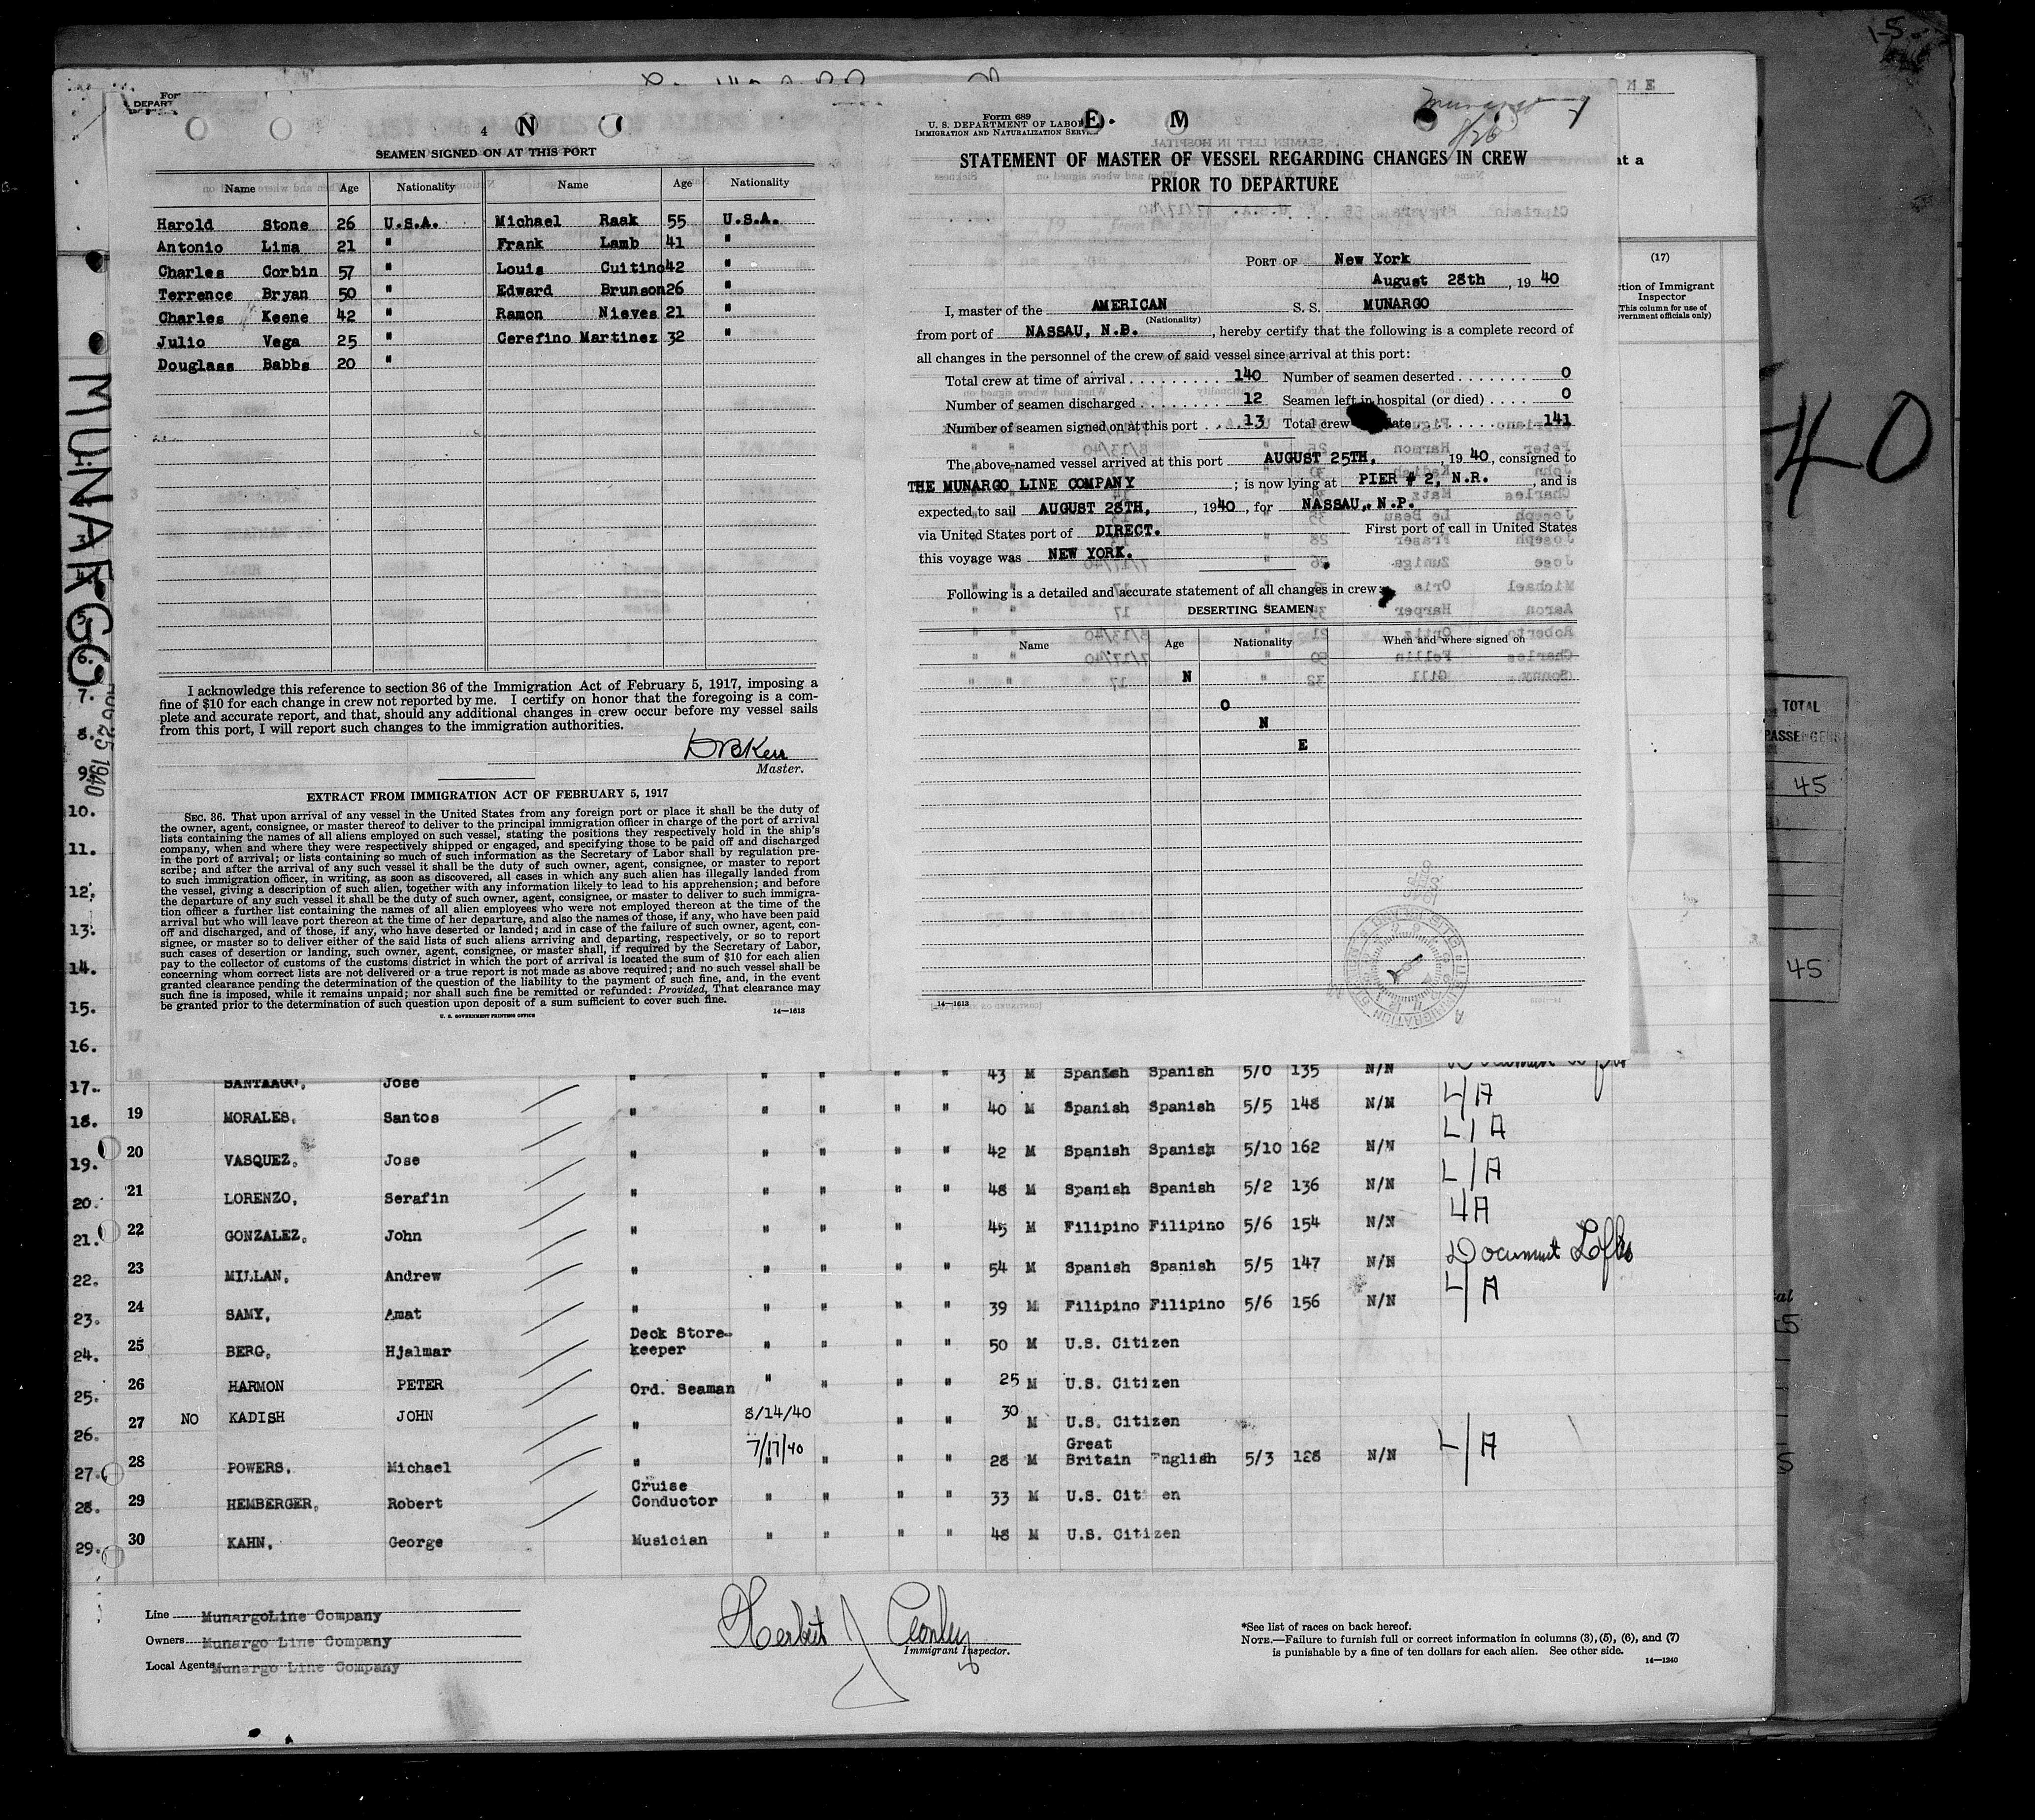 For
DEPART
4 N
SEAMEN SIGNED ON AT THIS PORT
Name Age Nationality Name Age Nationality
Harold Stone 26 U.S.A. Michael Raak 55 U.S.A.
Antonio Lima 21 " Frank Lamb 41 "
Charles Corbin 57 " Louis Cuitino 42 "
Terrence Bryan 50 " Edward Brunson 26 "
Charles Keene 42 " Ramon Nieves 21 "
Julio Vega 25 " Cerefino Martinez 32 "
Douglass Babbs 20 "
I acknowledge this reference to section 36 of the Immigration Act of February 5, 1917, imposing a
fine of $10 for each change in crew not reported by me. I certify on honor that the foregoing is a com-
plete and accurate report, and that, should any additional changes in crew occur before my vessel sails
from this port, I will report such changes to the immigration authorities.
Master.
EXTRACT FROM IMMIGRATION ACT OF FEBRUARY 5, 1917
SEC. 36. That upon arrival of any vessel in the United States from any foreign port or place it shall be the duty of
the owner, agent, consignee, or master thereof to deliver to the principal immigration officer in charge of the port of arrival
lists containing the names of all aliens employed on such vessel, stating the positions they respectively hold in the ship's
company, when and where they were respectively shipped or engaged, and specifying those to be paid off and discharged
in the port of arrival; or lists containing so much of such information as the Secretary of Labor shall by regulation pre-
scribe; and after the arrival of any such vessel it shall be the duty of such owner, agent, consignee, or master to report
to such immigration officer, in writing, as soon as discovered, all cases in which any such alien has illegally landed from
the vessel, giving a description of such alien, together with any information likely to lead to his apprehension; and before
the departure of any such vessel it shall be the duty of such owner, agent, consignee, or master to deliver to such immigra-
tion officer a further list containing the names of all alien employees who were not employed thereon at the time of the
arrival but who will leave port thereon at the time of her departure, and also the names of those, if any, who have been paid
off and discharged, and of those, if any, who have deserted or landed; and in case of the failure of such owner, agent, con-
signee, or master so to deliver either of the said lists of such aliens arriving and departing, respectively, or so to report
such cases of desertion or landing, such owner, agent, consignee, or master shall, if required by the Secretary of Labor,
pay to the collector of customs of the customs district in which the port of arrival is located the sum of $10 for each alien
concerning whom correct lists are not delivered or a true report is not made as above required; and no such vessel shall be
granted clearance pending the determination of the question of the liability to the payment of such fine, and, in the event
such fine is imposed, while it remains unpaid; nor shall such fine be remitted or refunded: Provided, That clearance may
be granted prior to the determination of such question upon deposit of a sum sufficient to cover such fine.
U. S. GOVERNMENT PRINTING OFFICE 14—1613
Form 689
U. S. DEPARTMENT OF LABOR
IMMIGRATION AND NATURALIZATION SERVICE
E. M
Munargo
8/26
STATEMENT OF MASTER OF VESSEL REGARDING CHANGES IN CREW
PRIOR TO DEPARTURE
PORT OF New York
August 28th, 1940
I, master of the AMERICAN S. S. MUNARGO
(Nationality)
from port of NASSAU, N.P., hereby certify that the following is a complete record of
all changes in the personnel of the crew of said vessel since arrival at this port:
Total crew at time of arrival 140 Number of seamen deserted 0
Number of seamen discharged 12 Seamen left in hospital (or died) 0
Number of seamen signed on at this port 13 Total crew date 141
The above-named vessel arrived at this port AUGUST 25TH, 1940, consigned to
THE MUNARGO LINE COMPANY; is now lying at PIER # 2, N.R., and is
expected to sail AUGUST 28TH, 1940, for NASSAU, N.P.
via United States port of DIRECT. First port of call in United States
this voyage was NEW YORK.
Following is a detailed and accurate statement of all changes in crew:
DESERTING SEAMEN
Name Age Nationality When and where signed on
N
O
N
E
14—1613
N E
at a
(17)
ction of Immigrant
Inspector
(This column for use of
vernment officials only)
40
TOTAL
PASSENGERS
45
45
MUNARGO
AUG 25 1940
3
5.
6.
7.
8.
9.
10.
11.
12.
13.
14.
15.
16.
17. SANTIAGO, Jose " " " " " 43 M Spanish Spanish 5/0 135 N/N
18. 19 MORALES, Santos " " " " " 40 M Spanish Spanish 5/5 148 N/N L/A
19. 20 VASQUEZ, Jose " " " " " 42 M Spanish Spanish 5/10 162 N/N L/A
20. 21 LORENZO, Serafin " " " " " 48 M Spanish Spanish 5/2 136 N/N L/A
21. 22 GONZALEZ, John " " " " " 45 M Filipino Filipino 5/6 154 N/N L/A
22. 23 MILLAN, Andrew " " " " " 54 M Spanish Spanish 5/5 147 N/N Document
23. 24 SAMY, Amat " " " " " 39 M Filipino Filipino 5/6 156 N/N L/A
24. 25 BERG, Hjalmar Deck Store-keeper " " " " 50 M U.S. Citizen
25. 26 HARMON PETER Ord. Seaman " " " " 25 M U.S. Citizen
26. 27 NO KADISH JOHN " 8/14/40 " " 30 M U.S. Citizen
27. 28 POWERS, Michael " 7/17/40 " " " " 28 M Great Britain English 5/3 128 N/N L/A
28. 29 HEMBERGER, Robert Cruise Conductor " " " " 33 M U.S. Cit en
29. 30 KAHN, George Musician " " " " 48 M U.S. Citizen
Line MunargoLine Company
Owners Munargo Line Company
Local Agents Munargo Line Company
Immigrant Inspector.
*See list of races on back hereof.
NOTE.—Failure to furnish full or correct information in columns (3), (5), (6), and (7)
is punishable by a fine of ten dollars for each alien. See other side.
14—1240